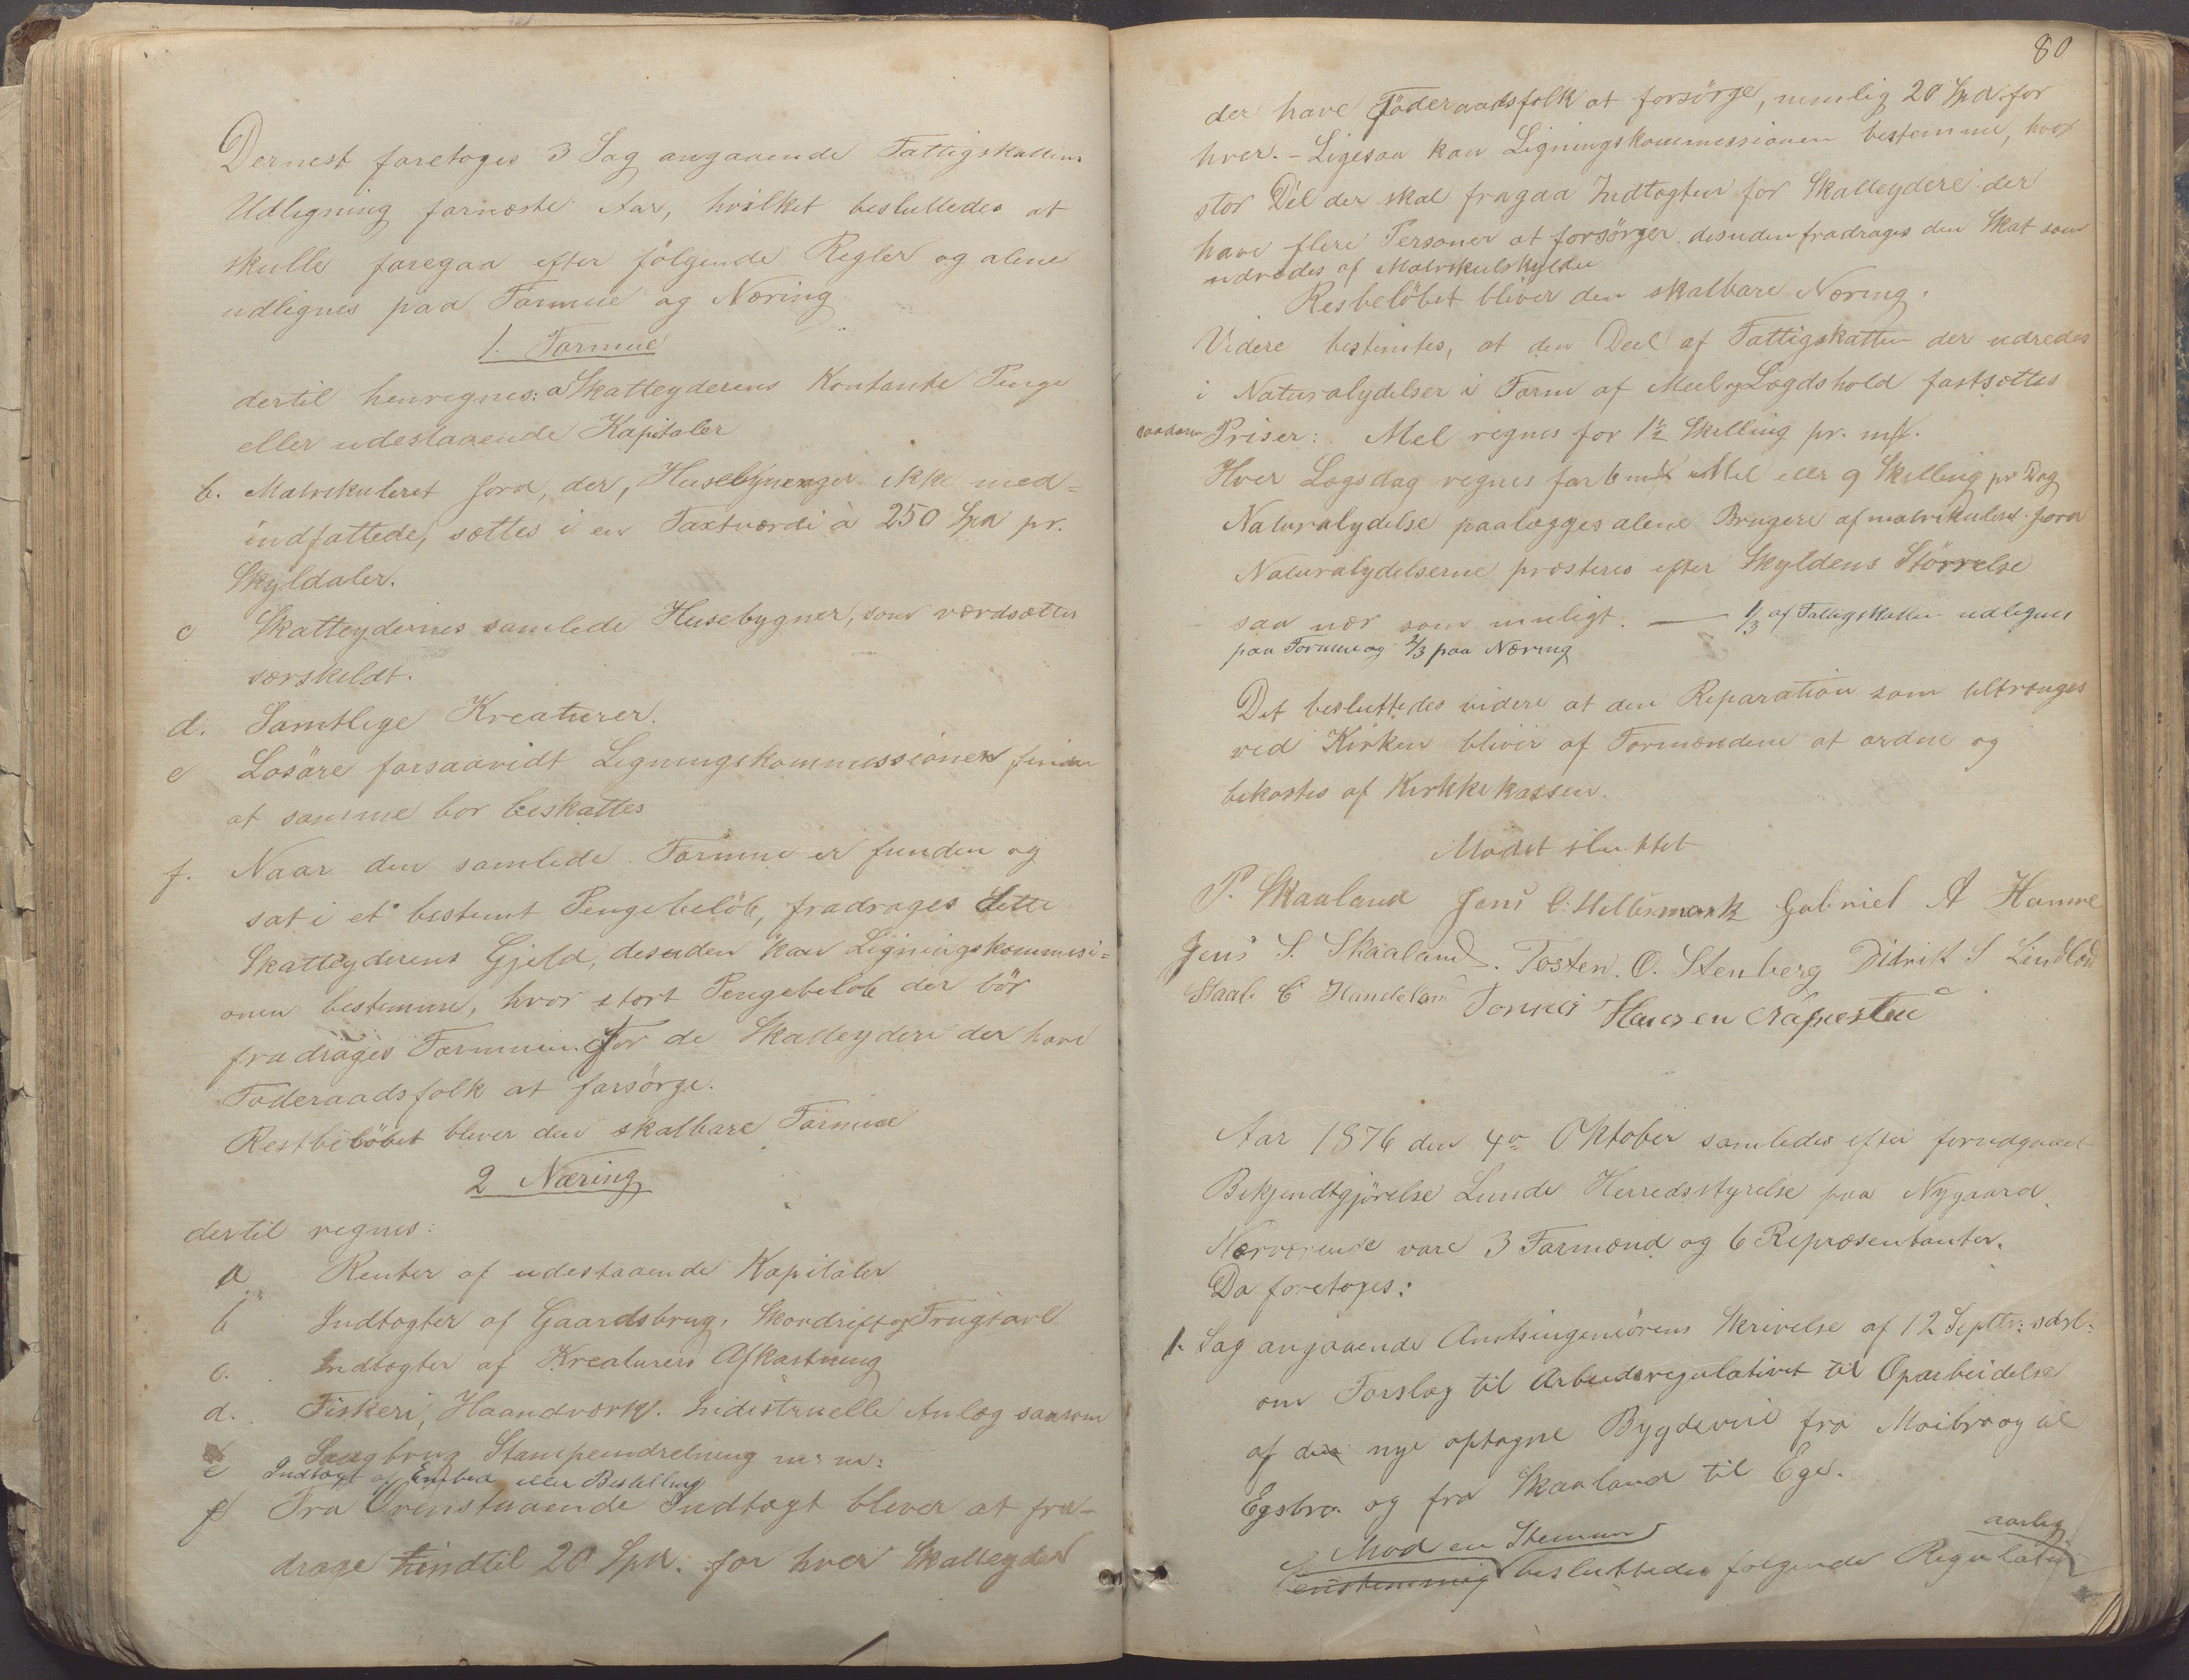 Dernest foretoges 3 Sag angaaende Fattigskattens
Udligning fornæste Aar, hvilket besluttedes at
skulle foregaa efter følgende Regler og alene
udlignes paa Formue og Næring
1. Formue
dertil henregnes: a Skatteyderens Kontante Penge
eller udestaaende Kapitaler
b. Matrikuleret Jord, der, Husebygninger ikke med=
indfattede, sættes i en Taxtværdi à 250 Spd pr.
Skyldaler.
c Skatteydernes samlede Husebygner, som værdsættes
særskildt.
d. Samtlige Kreaturer.
e Løsøre forsaavidt Ligningskommissionen finder
at samme bør beskattes
f. Naar den samlede Formue er funden og
sat i et bestemt Pengebeløb, fradrages dette
Skatteyderens Gjeld, desuden kan Ligningskommisi=
onen bestemme, hvor stort Pengebeløb der bør
fradrages Formuen for de Skatteydere der have
Føderaadsfolk at forsørge.
Restbeløbet bliver den skatbare Formue
2 Næring
dertil regnes:
a Renter af udestaaende Kapitaler
b Indtægter af Gaardsbrug, Skovdrift og Frugtavl
c. Indtægter af Kreaturers Afkastning
d. Fiskeri, Haandværk. Indistruelle Anlæg saasom
Saugbrug Stampeindretning m: m:
e Indtægt af Embed eller Bestilling
f Fra Ovenstaaende Indtægt bliver at fra-
drage indtil 20 Spd. for hver Skatteyder
80
der have Føderaadsfolk at forsørge, nemlig 20 Spd. for
hver. - Ligesaa kan Ligningskommessionen bestemme, hvor
stor Del der skal fragaa Indtægten for Skatteydere der
have flere Personer at forsørger. desuden fradrages den Skat som
udredes af Matrikulskylden
Resbeløbet bliver den skatbare Næring.
Videre bestemtes, at den Deel af Fattigskatten der udredes
i Naturalydelser i Form af Meel og Lægdshold fastsættes
saadanne Priser: Mel regnes for 1½ Skilling pr. mk.
Hver Lægsdag regnes for 6 mk Mel eller 9 Skilling pr Dag
Naturalydelse paalægges alene Brugere af matrikuleret Jord
Naturalydelserne præsteres efter Skyldens Størrelse
saa nær som muligt. — 1/3 af Fattigskatten udlignes
paa Formue og 2/3 paa Næring
Det besluttedes videre at den Reparation som tiltrænges
ved Kirken bliver af Formændene at ordne og
bekostes af Kirkkekassen.
Mødet sluttet
P. Skaaland Jens C. Hellesmark Gabriel A Hamre
Jens S. Skaaland. Tosten. O. Stenberg Didrik S Lindland
Staal. C Handeland Tønnes Hansen
Aar 1876 den 4de Oktober samledes efter forudgaaet
Bekjendtgjørelse Lunde Herredsstyrelse paa Nygaard
Nærværende vare 3 Formænd og 6 Repræsentanter.
Da foretoges:
1. Sag angaaende Amtsingeniørens Skrivelse af 12 Septbr: sdst:
om Forslag til Arbeidsregulativet til Oparbeidelse
af den nye optagne Bygdevei fra Moibro og til
Egsbro. og fra Skaaland til Ege.
Mod en Stemme aarlig
enstemmig besluttedes følgende Regulativ